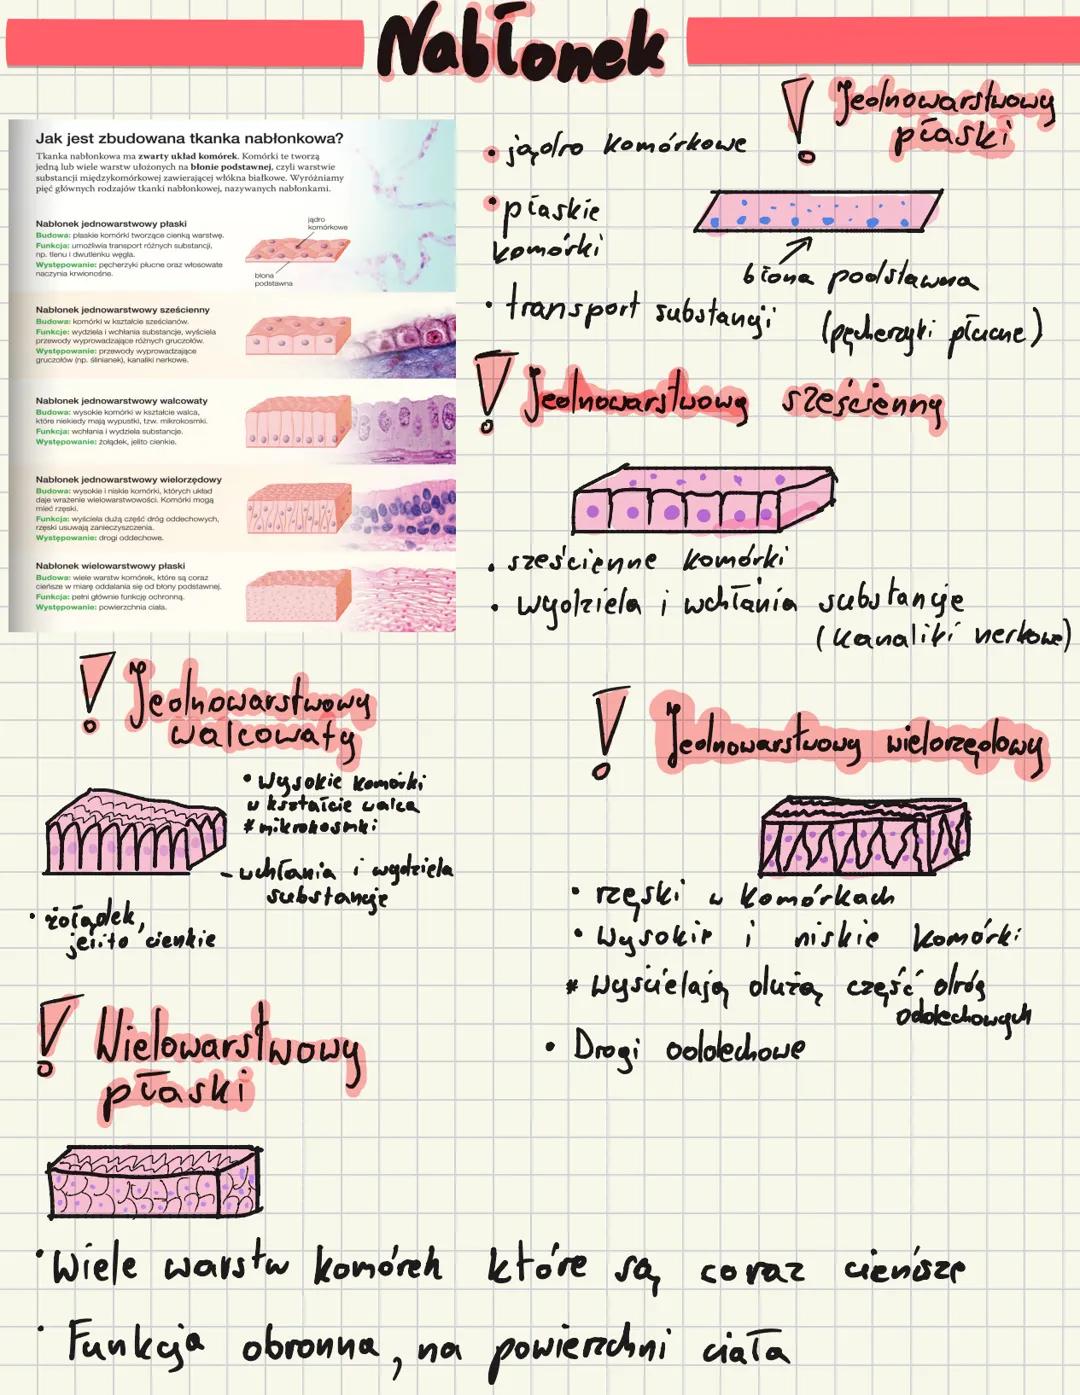 Nabłonek
Jak jest zbudowana tkanka nabłonkowa?
Tkanka nabłonkowa ma zwarty układ komórek. Komórki te tworzą
jedną lub wiele warstw ułożonych na błonie podstawnej, czyli warstwie
substancji międzykomórkowej zawierającej włókna białkowe. Wyróżniamy
pięć głównych rodzajów tkanki nabłonkowej, nazywanych nabłonkami.
Nabłonek jednowarstwowy płaski
Budowa: płaskie komórki tworzące cienką warstwę.
Funkcja: umożliwia transport różnych substancji,
np. tlenu i dwutlenku węgla.
Występowanie: pęcherzyki płucne oraz włosowate
naczynia krwionośne.
jądro
komórkowe
błona
podstawna
Nabłonek jednowarstwowy sześcienny
Budowa: komórki w kształcie sześcianów.
Funkcje: wydziela i wchłania substancje, wyściela
przewody wyprowadzające różnych gruczołów.
Występowanie: przewody wyprowadzające
gruczołów (np. ślinianek), kanaliki nerkowe.
Nabłonek jednowarstwowy walcowaty
Budowa: wysokie komórki w kształcie walca,
które niekiedy mają wypustki, tzw. mikrokosmki.
Funkcja: wchłania i wydziela substancje.
Występowanie: żołądek, jelito cienkie.
Nabłonek jednowarstwowy wielorzędowy
Budowa: wysokie i niskie komórki, których układ
daje wrażenie wielowarstwowości. Komórki mogą
mieć rzęski.
Funkcja: wyściela dużą część dróg oddechowych,
rzęski usuwają zanieczyszczenia.
Występowanie: drogi oddechowe.
Nabłonek wielowarstwowy płaski
Budowa: wiele warstw komórek, które są coraz
cieńsze w miarę oddalania się od błony podstawnej.
Funkcja: pełni głównie funkcję ochronną.
Występowanie: powierzchnia ciała.
! Jednowarstwowy
płaski
• jądro komórkowe
• płaskie
komórki
błona podstawna
• transport substancji
(pęcherzyki płucne)
! Jednowarstwowy sześcienny
• sześcienne komórki
• wydziela i wchłania substancje
(kanaliki nerkowe)
! Jednowarstwowy
walcowaty
• Wysokie komórki
w kształcie walca
* mikrokosmki
- wchłania i wydziela
substancje
• żołądek,
jelito cienkie
! Jednowarstwowy wielorzędowy
• rzęski w komórkach
• Wysokie i niskie komórki
* Wyścielają dużą część dróg
oddechowych
• Drogi oddechowe
! Wielowarstwowy
płaski
• Wiele warstw komórek które są coraz cieńsze
• Funkcja obronna, na powierzchni ciała